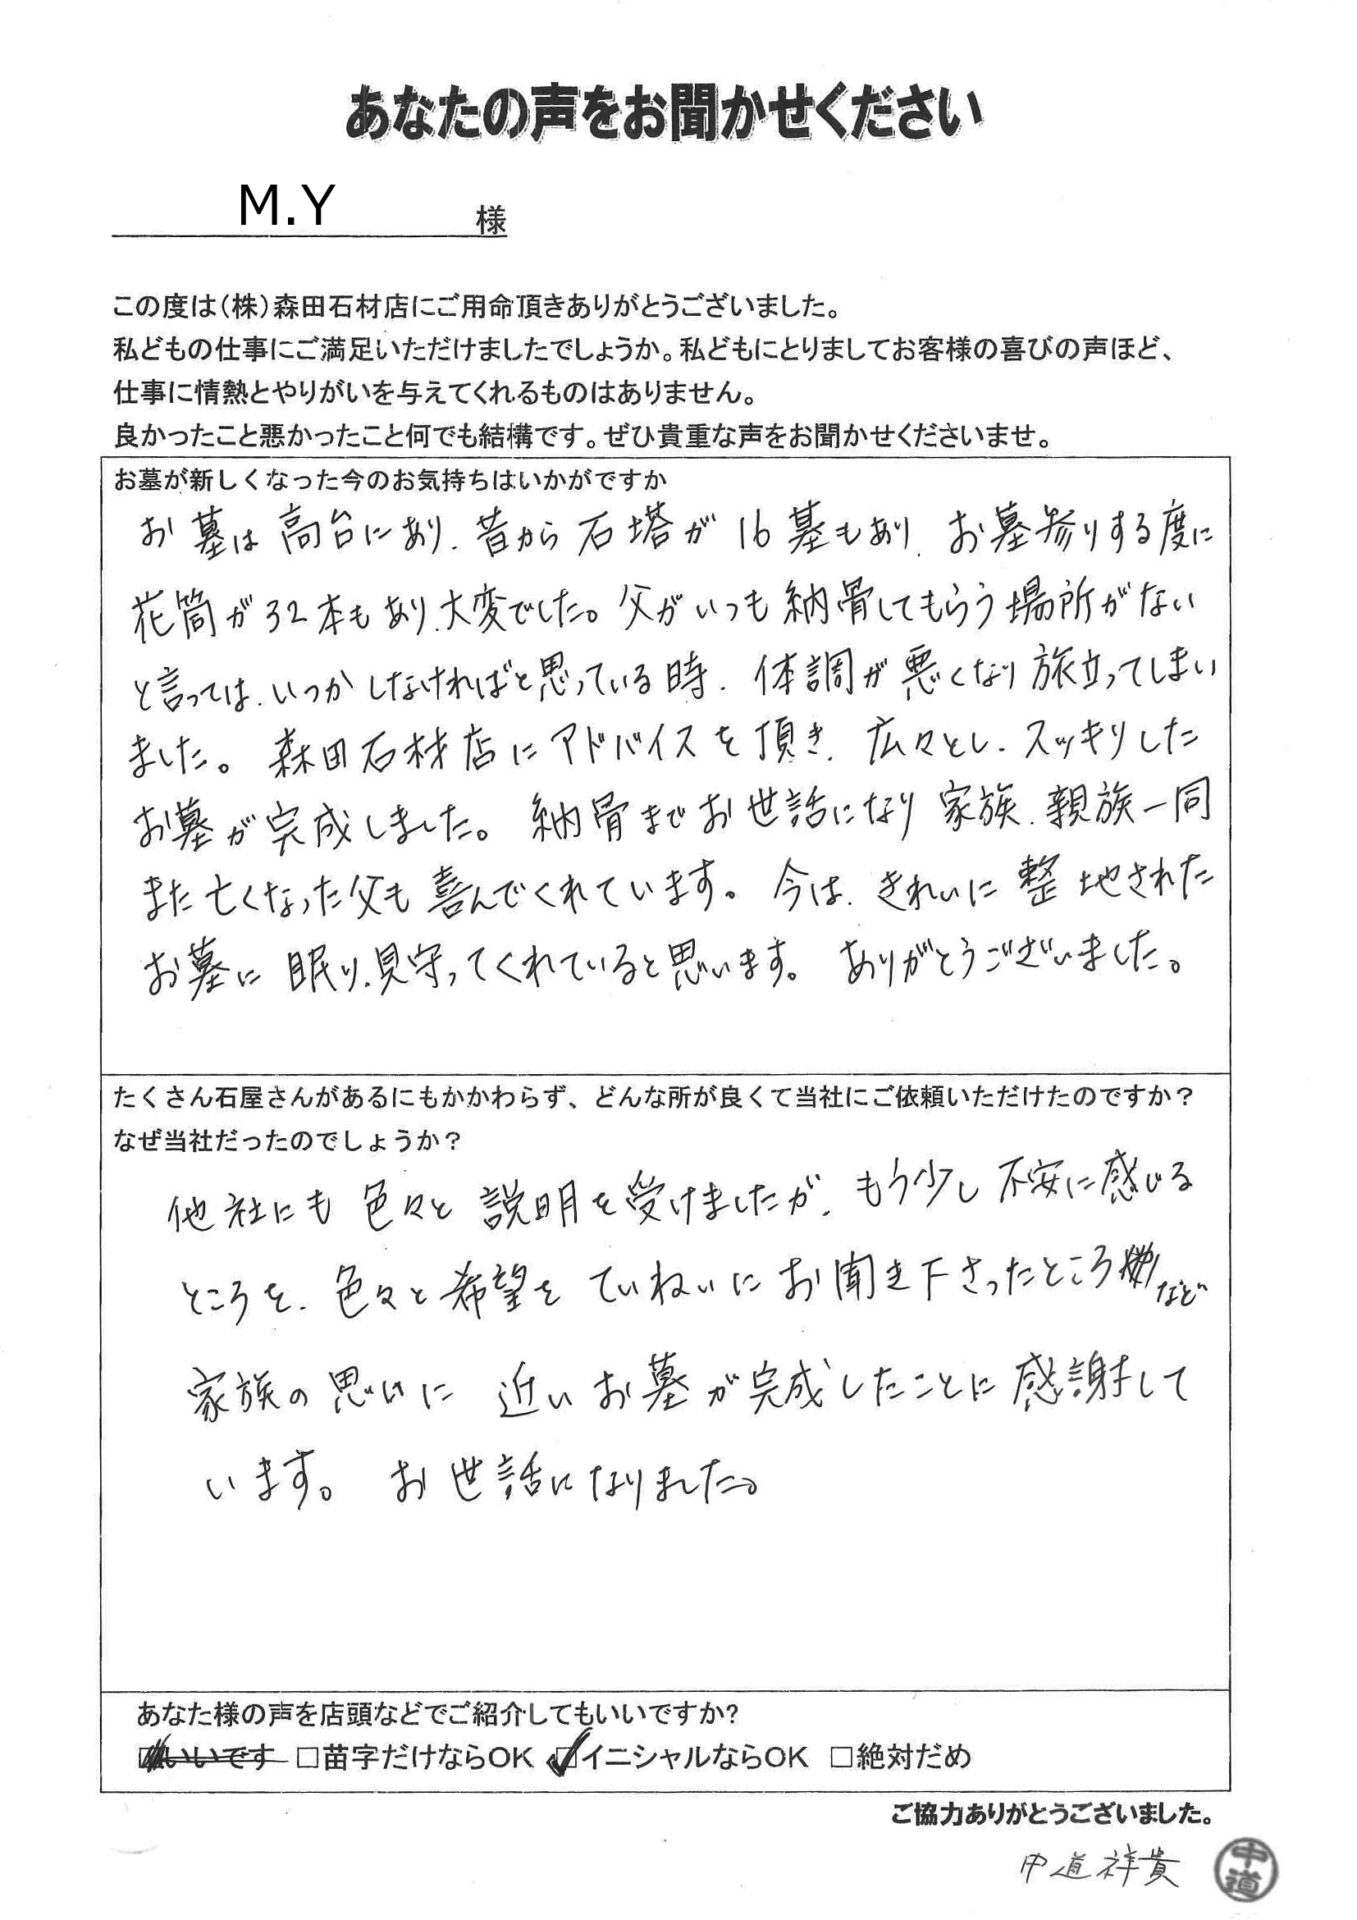 あなたの声をお聞かせください
M.Y 様
この度は(株)森田石材店にご用命頂きありがとうございました。
私どもの仕事にご満足いただけましたでしょうか。私どもにとりましてお客様の喜びの声ほど、
仕事に情熱とやりがいを与えてくれるものはありません。
良かったこと悪かったこと何でも結構です。ぜひ貴重な声をお聞かせくださいませ。
お墓が新しくなった今のお気持ちはいかがですか
お墓は高台にあり、昔から石塔が16墓もあり、お墓参りする度に
花筒が32本もあり、大変でした。父がいつも納骨してもらう場所がない
と言っては、いつかしなければと思っている時、体調が悪くなり旅立ってしまい
ました。森田石材店にアドバイスを頂き、広々とし、スッキリした
お墓が完成しました。納骨までお世話になり家族、親族一同
また亡くなった父も喜んでくれています。今は、きれいに整地された
お墓に眠り、見守ってくれていると思います。ありがとうございました。
たくさん石屋さんがあるにもかかわらず、どんな所が良くて当社にご依頼いただけたのですか?
なぜ当社だったのでしょうか?
他社にも色々と説明を受けましたが、もう少し不安に感じる
ところを、色々と希望をていねいにお聞き下さったところなど
家族の思いに近いお墓が完成したことに感謝して
います。お世話になりました。
あなた様の声を店頭などでご紹介してもいいですか?
□いいです □苗字だけならOK ☑イニシャルならOK □絶対だめ
ご協力ありがとうございました。
中道祥貴 中道